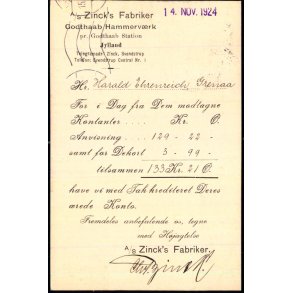 A/s Zinck's Fabriker
14. NOV. 1924
Godthaab Hammerværk
pr. Godthaab Station
Jylland
Telegramadr.: Zinck, Svenstrup
Telefon: Svenstrup Central Nr. 1
Hr. Harald Ehrenreich, Grenaa
For i Dag fra Dem modtagne
Kontanter Kr. Ø.
Anvisning 129 - 22 -
samt for Dekort 3 - 99 -
tilsammen 133 Kr. 21 Ø.
have vi med Tak krediteret Deres
ærede Konto.
Fremdeles anbefalende os, tegne
med Højagtelse
A/s Zinck's Fabriker.